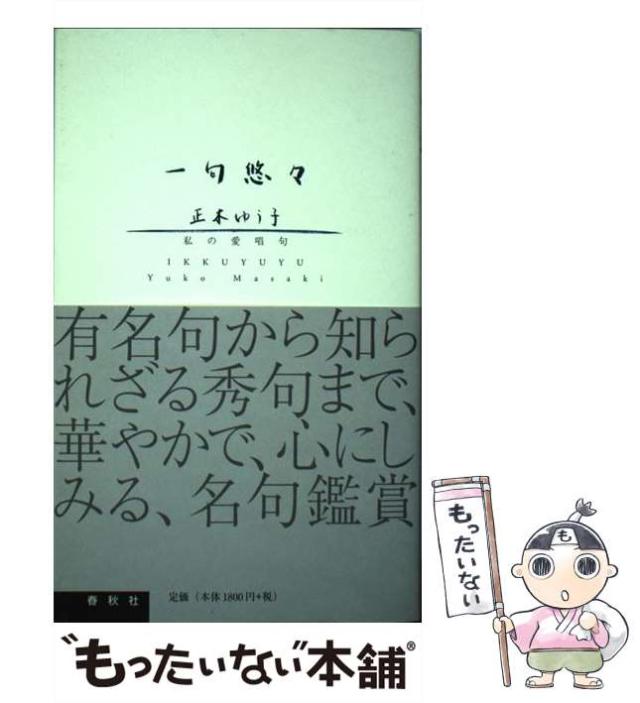 一句悠々
正木ゆう子
私の愛唱句
IKKUYUYU
Yuko Masaki
有名句から知ら
れざる秀句まで、
華やかで、心にし
みる、名句鑑賞
春秋社
定価（本体1800円+税）
“もったいない”本舗®
もったいない
も